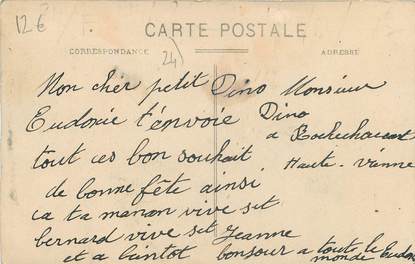 12€
CARTE POSTALE
CORRESPONDANCE
ADRESSE
24)
Mon cher petit Dino
Eudoxie t'envoie
tout ces bon souhait
de bonne fête ainsi
ca ta maman vive set
bernard vive set Jeanne
et a bintot bonsour a toute le
monde Eudo
Monsieur
Dino
a Rochechouart
Haute-vienne